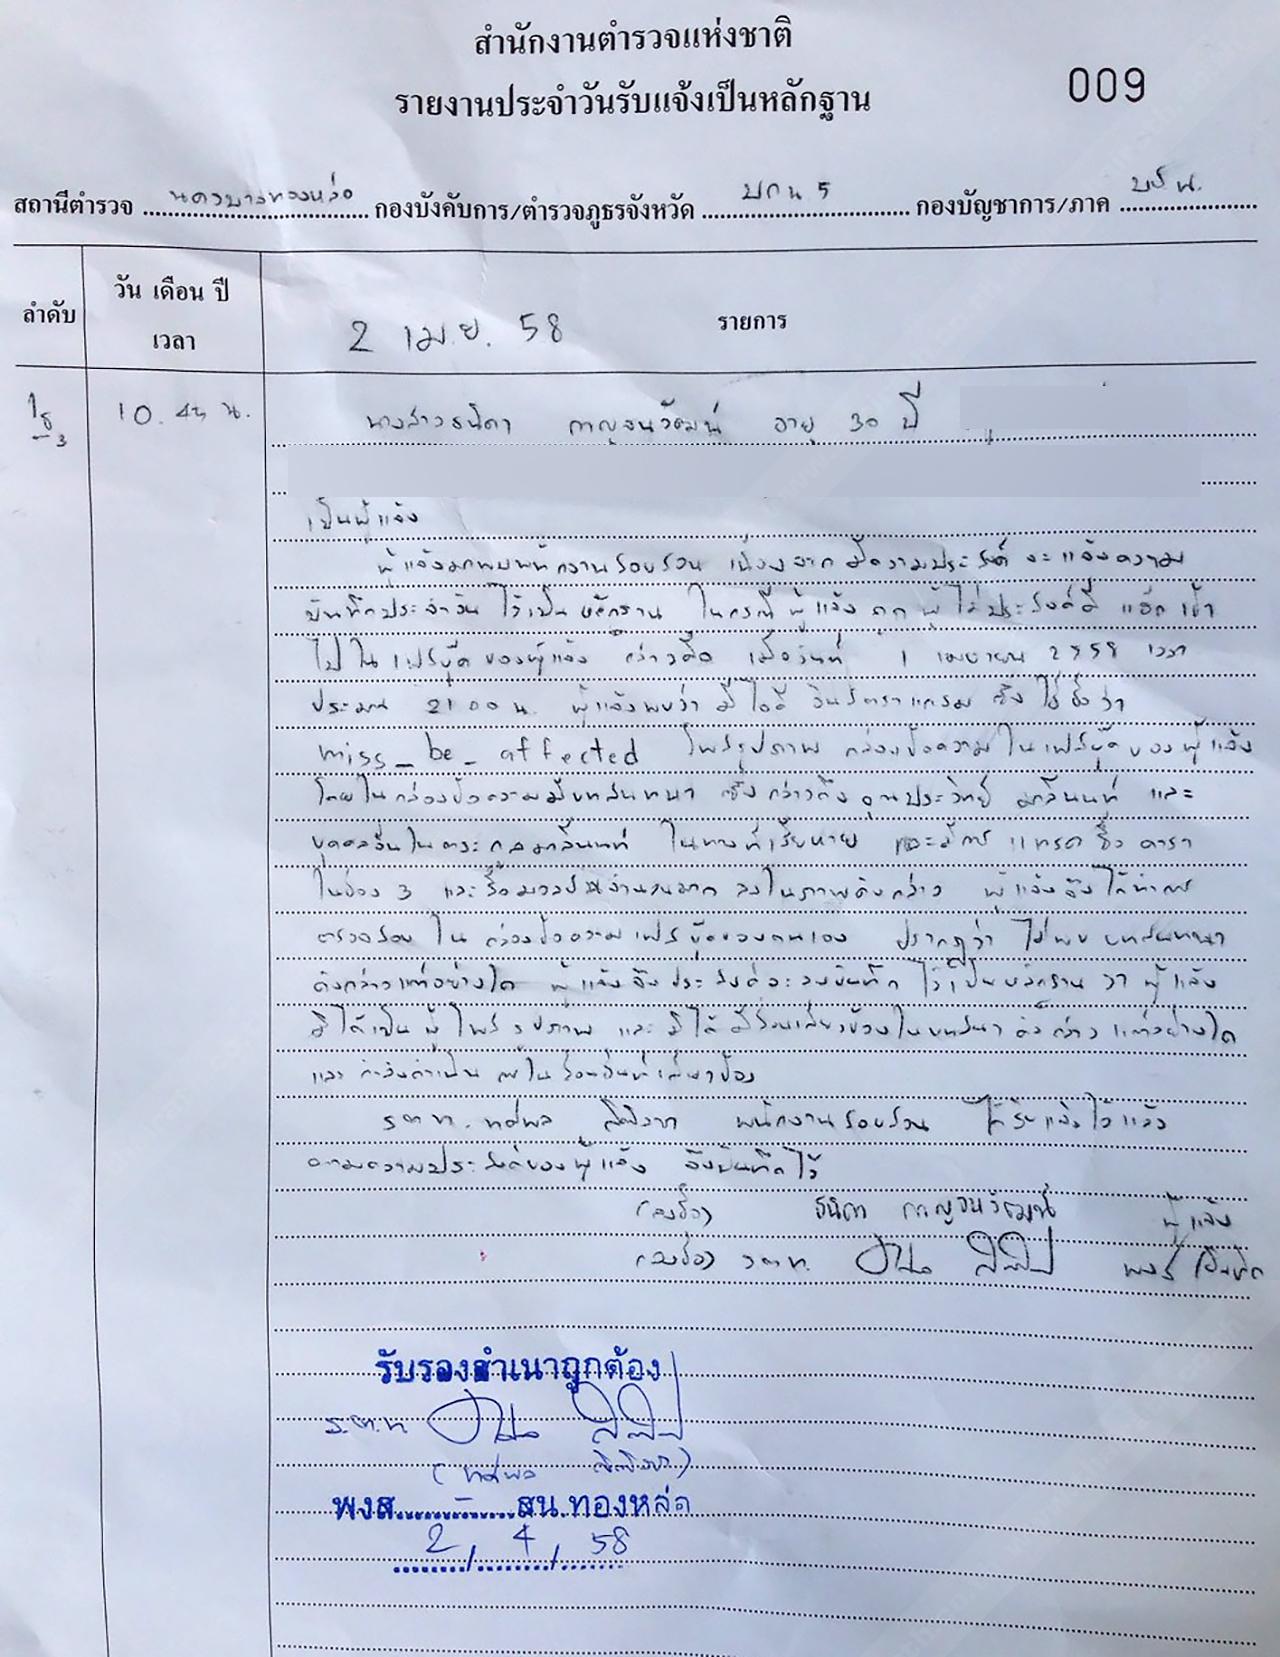 สำนักงานตำรวจแห่งชาติ
รายงานประจำวันรับแจ้งเป็นหลักฐาน
009
สถานีตำรวจ นครบาลทองหล่อ กองบังคับการ/ตำรวจภูธรจังหวัด บก น 5 กองบัญชาการ/ภาค บช น.
ลำดับ
วัน เดือน ปี
เวลา
2 เม.ย. 58
รายการ
10.45 น.
นางสาวธนิดา กาญจนวัฒน์ อายุ 30 ปี
เป็นผู้แจ้ง
ผู้แจ้งมาพบพนักงานสอบสวน เนื่องจาก มีความประสงค์ จะแจ้งความ
บันทึกประจำวัน ไว้เป็นหลักฐาน ในกรณี ผู้แจ้ง ถูก ผู้ไม่ประสงค์ดี แฮ็ก เข้า
ไปในเฟสบุ๊คของผู้แจ้ง กล่าวคือ เมื่อวันที่ 1 เมษายน 2558 เวลา
ประมาณ 21.00 น. ผู้แจ้งพบว่า มีไอดี อินสตราแกรม ซึ่งใช้ชื่อว่า
miss_be_affected โพสรูปภาพ กล่องข้อความในเฟสบุ๊คของผู้แจ้ง
โดยในกล่องข้อความมีบทสนทนา ซึ่งกล่าวถึง คุณประวิทย์ มาลีนนท์ และ
บุคคลอื่นในตระกูลมาลีนนท์ ในทางที่เสียหาย และมีการ แทรกชื่อ ดารา
ในช่อง 3 และสื่อมวลชนจำนวนมาก ลงในภาพดังกล่าว ผู้แจ้งจึงได้ทำการ
ตรวจสอบ ในกล่องข้อความเฟสบุ๊คของตนเอง ปรากฏว่า ไม่พบบทสนทนา
ดังกล่าวแต่อย่างใด ผู้แจ้งจึงประสงค์จะลงบันทึก ไว้เป็นหลักฐาน ว่า ผู้แจ้ง
มิได้เป็นผู้โพสรูปภาพ และ มิได้มีส่วนเกี่ยวข้องในบทสนทนา ดังกล่าว แต่อย่างใด
และ กำลังดำเนินการในส่วนอื่นที่เกี่ยวข้อง
ร.ต.ท. ทศพล พนักงานสอบสวน ได้รับแจ้งไว้แล้ว
ตามความประสงค์ของผู้แจ้ง จึงบันทึกไว้
(ลงชื่อ) ธนิดา กาญจนวัฒน์ ผู้แจ้ง
(ลงชื่อ) ร.ต.ท. พงส/บันทึก
รับรองสำเนาถูกต้อง
ร.ต.ท
(ทศพล )
พงส. สน.ทองหล่อ
2 / 4 / 58